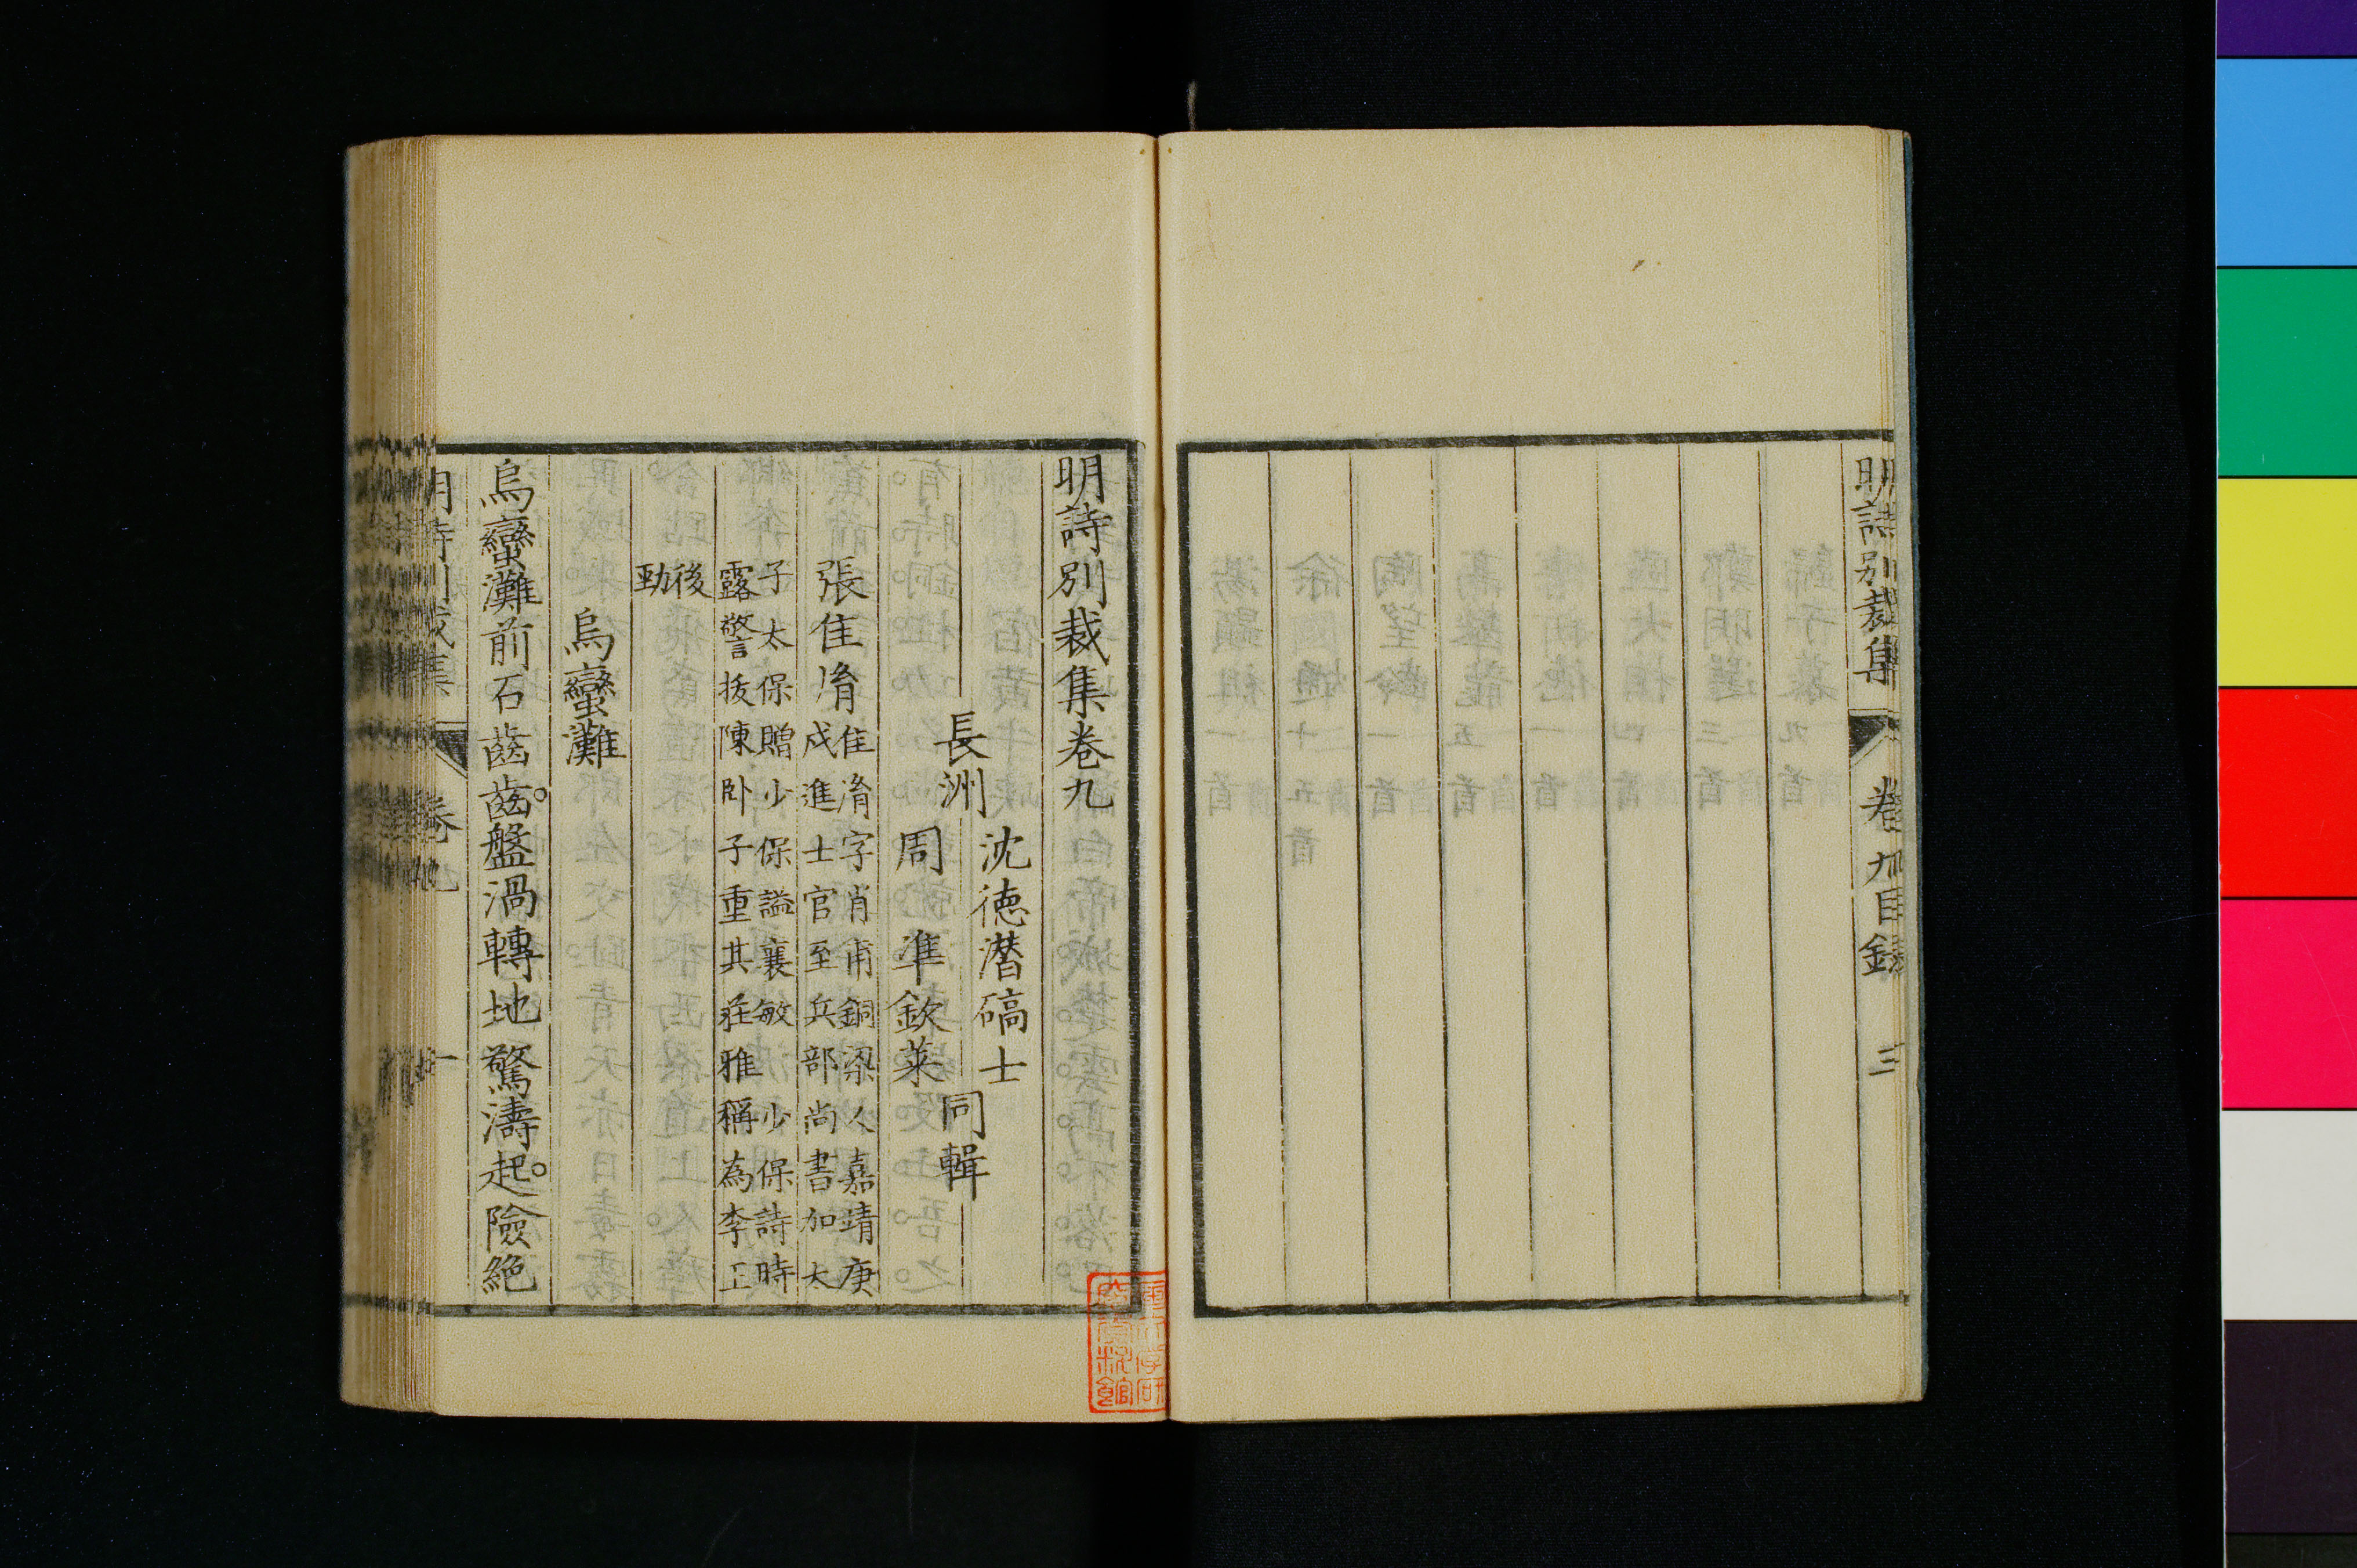 明詩別裁集
卷九目錄
三
明詩別裁集卷九
長洲
沈德潛碻士
周準欽萊
同輯
張佳胤
佳胤字肖甫銅梁人嘉靖庚
戌進士官至兵部尚書加太
子太保贈少保謚襄敏少保詩時
露警拔陳卧子重其莊雅稱為李王
後
勁
烏蠻灘
烏蠻灘前石齒齒盤渦轉地驚濤起險絕